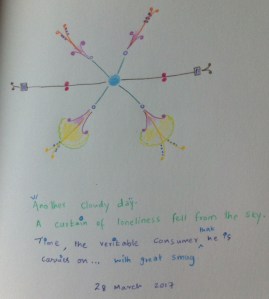 Another cloudy day.
A curtain of loneliness fell from the sky.
Time, the veritable consumer that he is
carried on... with great smug
28 March 2017